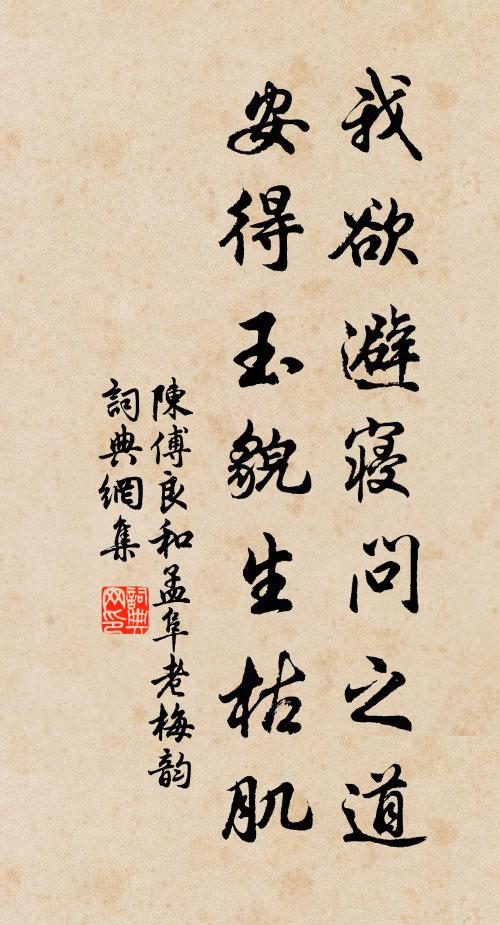 我欲避寝問之道
安得玉貌生枯肌
陳傅良和孟阜老梅韵
詞典網集
詞典网印